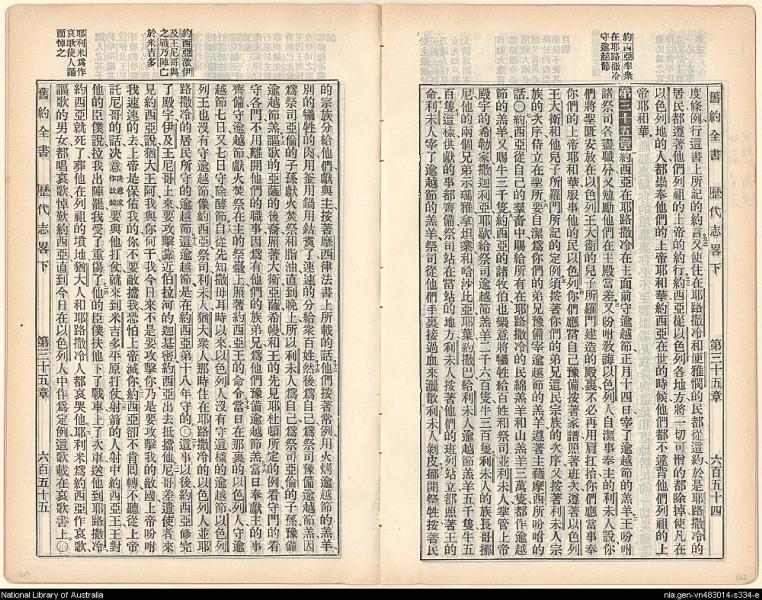 約西亞率衆
在耶路撒冷
守逾越節
舊約全書 歷代志畧下 第三十五章 六百五十四
度條例行這書上所記的約言又使住在耶路撒冷的和便雅憫的民都從這約於是耶路撒冷的
居民都遵著他們列祖的上帝的約行約西亞從以色列各地方將一切可憎的都除掉使凡在
以色列地的人都崇奉他們的上帝耶和華約西亞在世的時候他們都不違背他們列祖的上
帝耶和華
第三十五章約西亞在耶路撒冷在主面前守逾越節正月十四日宰了逾越節的羔羊王吩咐
諸祭司各盡職分又勉勵他們在主殿當差又吩咐教誨以色列人自潔事奉主的利未人說你
們將聖匱安放在以色列王大衛的兒子所羅門建造的殿裏不必再用肩扛抬你們應當事奉
你們的上帝耶和華服事他的民以色列你們應當自己豫備按著家譜照著班次遵著以色列
王大衛和他兒子所羅門所記的定例須按著你們的弟兄這民宗族的次序又按著利未人宗
族的次序侍立在聖所要自潔爲你們的弟兄豫備宰逾越節的羔羊遵著主藉摩西所吩咐的
話○約西亞從自己的羣畜中賜給所有在耶路撒冷的民綿羔羊和山羔羊三萬隻都作逾越
節的羔羊又賜牛三千隻約西亞的諸牧伯也樂意將犧牲給百姓和祭司並利未人掌管上帝
殿宇的希勒家撒迦利亞耶歇給祭司逾越節羔羊二千六百隻牛三百隻利未人的族長哥挪
尼他的兩個兄弟示瑪雅拿坦業和哈沙比亞耶葉約撒巴給利未人逾越節羔羊五千隻牛五
百隻這樣供獻的事都齊備祭司站在當站的地方利未人按著他們的班列站立都照著王的
命利未人宰了逾越節的羔羊祭司從他們手裏接過血來灑散利未人剝皮挪開燔祭牲按著民
約西亞激伊
及王尼哥與
之戰乃陣亡
於米吉多
耶利米爲作
哀歌使人誦
而悼之
的宗族分給他們獻與主按著摩西律法書上所載的話他們按著常例用火烤逾越節的羔羊
別的犧牲的肉用釜用鍋用鼎煑了速速的分給衆百姓然後爲自己爲祭司豫備逾越節羔因
爲祭司亞倫的子孫獻火焚祭和脂油直到晩上所以利未人爲自己爲祭司亞倫的子孫豫備
逾越節羔謳歌的亞薩的後裔照著大衛亞薩希幔和王的先見耶杜頓所定的例看守門的看
守各門不用離開他們的職事因爲有他們的族弟兄爲他們豫備逾越節羔當日奉獻主的事
齊備守逾越節獻火焚祭在主的祭臺上照著約西亞王的命令當日在那裏的以色列人守逾
越節七日又七日守除酵節自從先知撒母耳時以來以色列人沒有守這樣的逾越節以色列
列王也沒有守逾越節像約西亞祭司利未人猶大衆人那時住在耶路撒冷的以色列人並耶
路撒冷的居民所守的逾越節這逾越節是在約西亞第十八年守的○這事以後約西亞修完
了殿宇伊及王尼哥上來要攻擊靠近伯拉河的迦基密約西亞出去抵擋他尼哥差遣使者來
見約西亞說猶大王阿我與你何干我今日來不是要攻擊你乃是要攻擊我的敵國上帝吩咐
我速速的去上帝是保佑我的你不要敵擋我恐怕上帝滅你約西亞卻不肯囘轉不聽從上帝
託尼哥的話決意要與他打仗就來到米吉多平原打仗射箭的人射中約西亞王王對
他的臣僕說拉我出陣罷我受了重傷了他的臣僕扶他下了戰車上了次車送他到耶路撒冷
約西亞就死了葬他在列祖的墳地猶大人和耶路撒冷人都哀哭他耶利米爲約西亞作哀歌
謳歌的男女都唱哀歌悼歎約西亞直到今日在以色列人中作爲定例這歌載在哀歌書上○
舊約全書 歷代志畧下 第三十五章 六百五十五
National Library of Australia
nla.gen-vn483014-s334-e